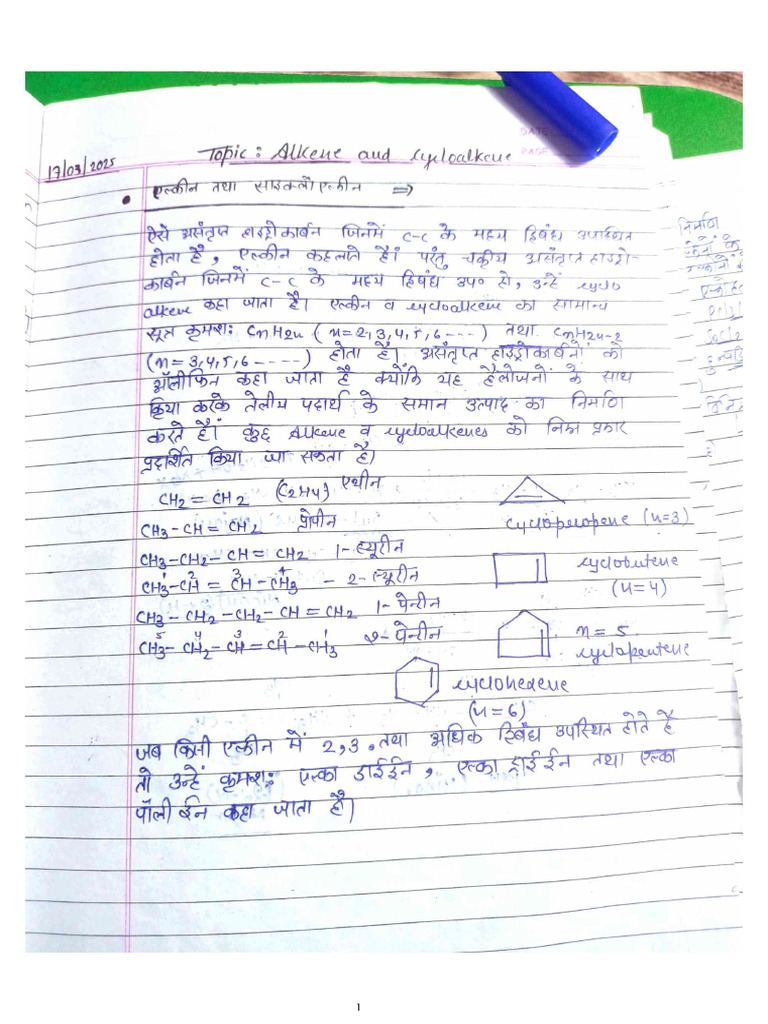 17/03/2025
Topic: Alkene and cycloalkene
DATE
PAGE
एल्कीन तथा साइक्लोएल्कीन ⇒
ऐसे असंतृप्त हाइड्रोकार्बन जिनमें C-C के मध्य द्विबंध उपस्थित
होता है, एल्कीन कहलाते हैं। परंतु चक्रीय असंतृप्त हाइड्रो-
कार्बन जिनमें C-C के मध्य द्विबंध उप० हो, उन्हें cyclo
alkene कहा जाता है। एल्कीन व cycloalkene का सामान्य
सूत्र क्रमशः CnH2n (n=2,3,4,5,6----) तथा CnH2n-2
(n=3,4,5,6-----) होता है। असंतृप्त हाइड्रोकार्बनों को
ऑलीफिन कहा जाता है क्योंकि यह हैलोजनों के साथ
क्रिया करके तेलीय पदार्थ के समान उत्पाद का निर्माण
करते हैं। कुछ Alkene व cycloalkenes को निम्न प्रकार
प्रदर्शित किया जा सकता है।
CH2=CH2 (C2H4) एथीन
CH3-CH=CH2 प्रोपीन
cyclopropene (n=3)
CH3-CH2-CH=CH2 1-ब्यूटीन
cyclobutene
(n=4)
1 2 3 4
CH3-CH=CH-CH3 - 2-ब्यूटीन
CH3-CH2-CH2-CH=CH2 1-पेन्टीन
5 4 3 2 1
CH3-CH2-CH=CH-CH3 2-पेन्टीन
n=5
cyclopentene
cyclohexene
(n=6)
जब किसी एल्कीन में 2,3, तथा अधिक द्विबंध उपस्थित होते है
तो उन्हें क्रमशः एल्का डाईईन, एल्का ट्राईईन तथा एल्का
पॉलीईन कहा जाता है।
निर्माण
1